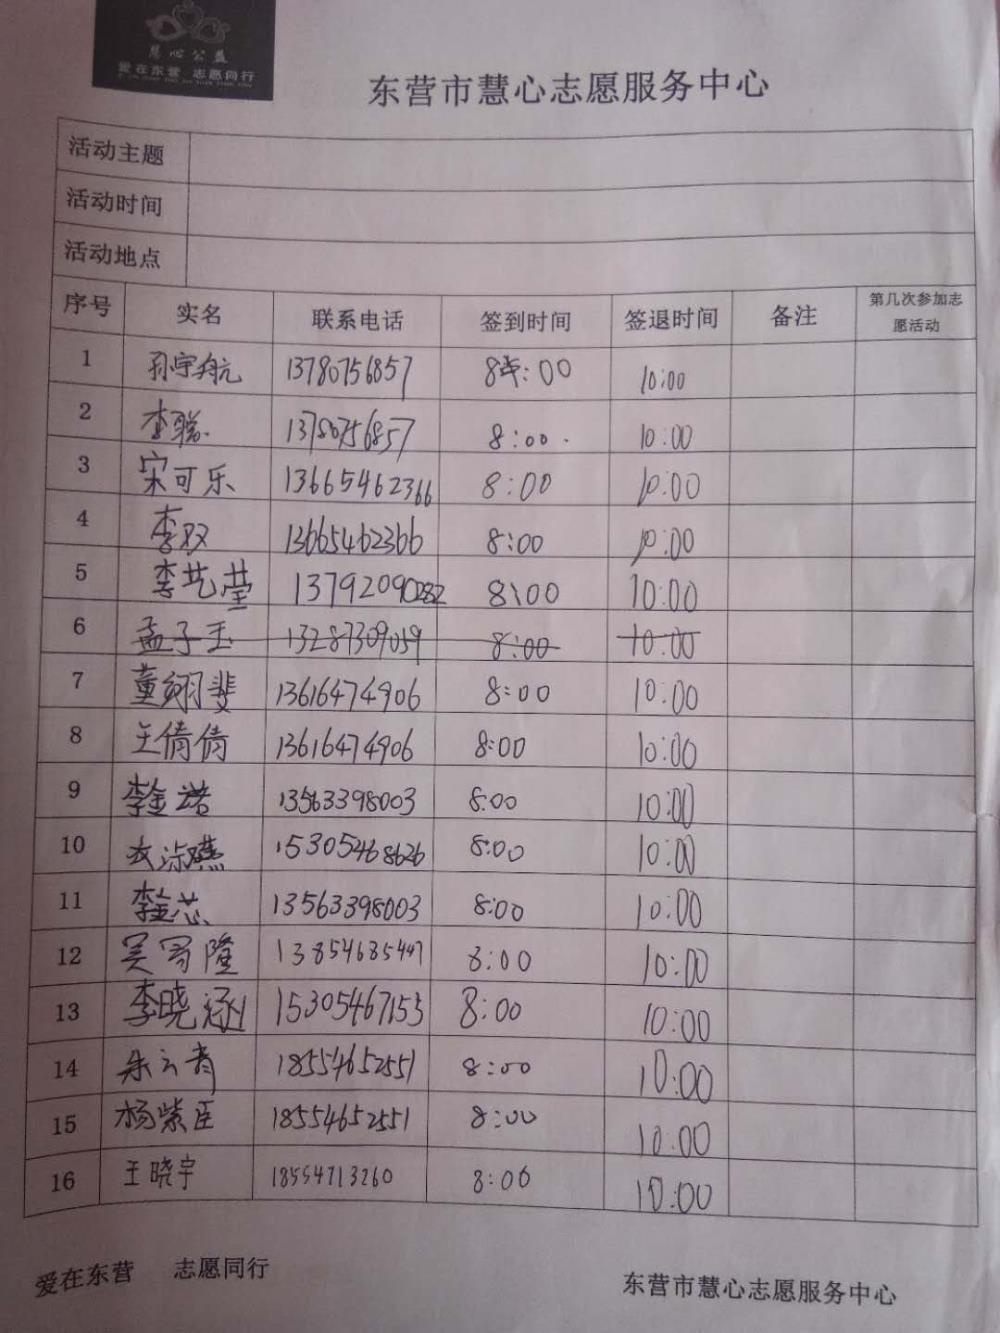 慧心公益
爱在东营 志愿同行
东营市慧心志愿服务中心
活动主题
活动时间
活动地点
序号 实名 联系电话 签到时间 签退时间 备注 第几次参加志愿活动
1 孙宇航 13780756857 8:00 10:00
2 李聪 13780756857 8:00 10:00
3 宋可乐 13665462366 8:00 10:00
4 李双 13665462366 8:00 10:00
5 李艺莹 13792090282 8:00 10:00
6 孟子玉 13287309059 8:00 10:00
7 董翊斐 13616474906 8:00 10:00
8 王倩倩 13616474906 8:00 10:00
9 李金诺 13563398003 8:00 10:00
10 15305468626 8:00 10:00
11 李金芯 13563398003 8:00 10:00
12 吴 隆 13854635447 8:00 10:00
13 李晓涵 15305467153 8:00 10:00
14 朱云青 18554652551 8:00 10:00
15 杨紫臣 18554652551 8:00 10:00
16 王晓宇 18554713260 8:00 10:00
爱在东营 志愿同行
东营市慧心志愿服务中心